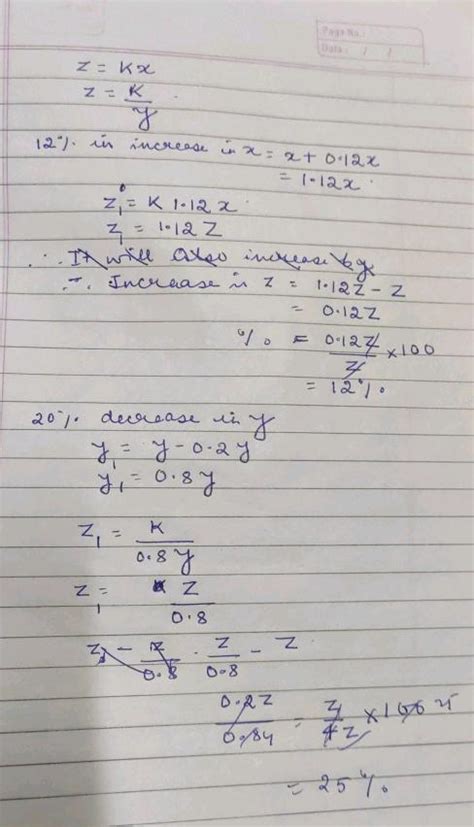 Page No.:
Date: / /
z = Kx
z = K/y
12% in increase in x = x + 0.12x
= 1.12x
z₁ = K 1.12x
z₁ = 1.12Z
∴ It will also increase by
∴ Increase in z = 1.12Z - Z
= 0.12Z
% = 0.12Z/Z × 100
= 12%
20% decrease in y
y₁ = y - 0.2y
y₁ = 0.8y
Z₁ = K/0.8y
Z₁ = Z/0.8
Z/0.8 - Z
= Z/4Z × 100
= 25%